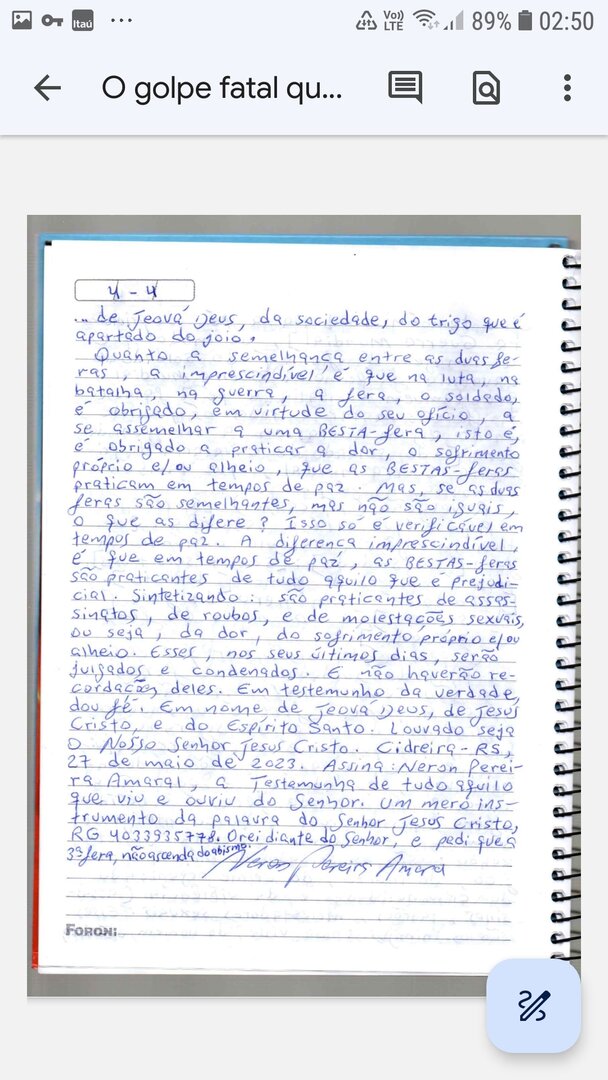 Itaú
...
Vo))
LTE
89%
02:50
O golpe fatal qu...
4 - 4
... de Jeová Deus, da sociedade, do trigo que é
apartado do joio.
Quanto a semelhança entre as duas fe-
ras, a imprescindível é que na luta, na
batalha, na guerra, a fera, o soldado,
é obrigado, em virtude do seu ofício, a
se assemelhar a uma BESTA-fera, isto é,
é obrigado a praticar a dor, o sofrimento
próprio e/ou alheio, que as BESTAS-feras
praticam em tempos de paz. Mas, se as duas
feras são semelhantes, mas não são iguais,
o que as difere? Isso só é verificável em
tempos de paz. A diferença imprescindível,
é que em tempos de paz, as BESTAS-feras
são praticantes de tudo aquilo que é prejudi-
cial. Sintetizando: são praticantes de assas-
sinatos, de roubos, e de molestações sexuais,
ou seja, da dor, do sofrimento próprio e/ou
alheio. Esses, nos seus últimos dias, serão
julgados e condenados. E não haverão re-
cordações deles. Em testemunho da verdade,
dou fé. Em nome de Jeová Deus, de Jesus
Cristo, e do Espírito Santo. Louvado seja
o Nosso Senhor Jesus Cristo. Cidreira-RS,
27 de maio de 2023. Assina: Neron Perei-
ra Amaral, a Testemunha de tudo aquilo
que viu e ouviu do Senhor. Um mero ins-
trumento da palavra do Senhor Jesus Cristo,
RG 4033935778. Orei diante do Senhor, e pedi que a
3ª fera, não ascenda do abismo.
Neron Pereira Amaral
FORONI